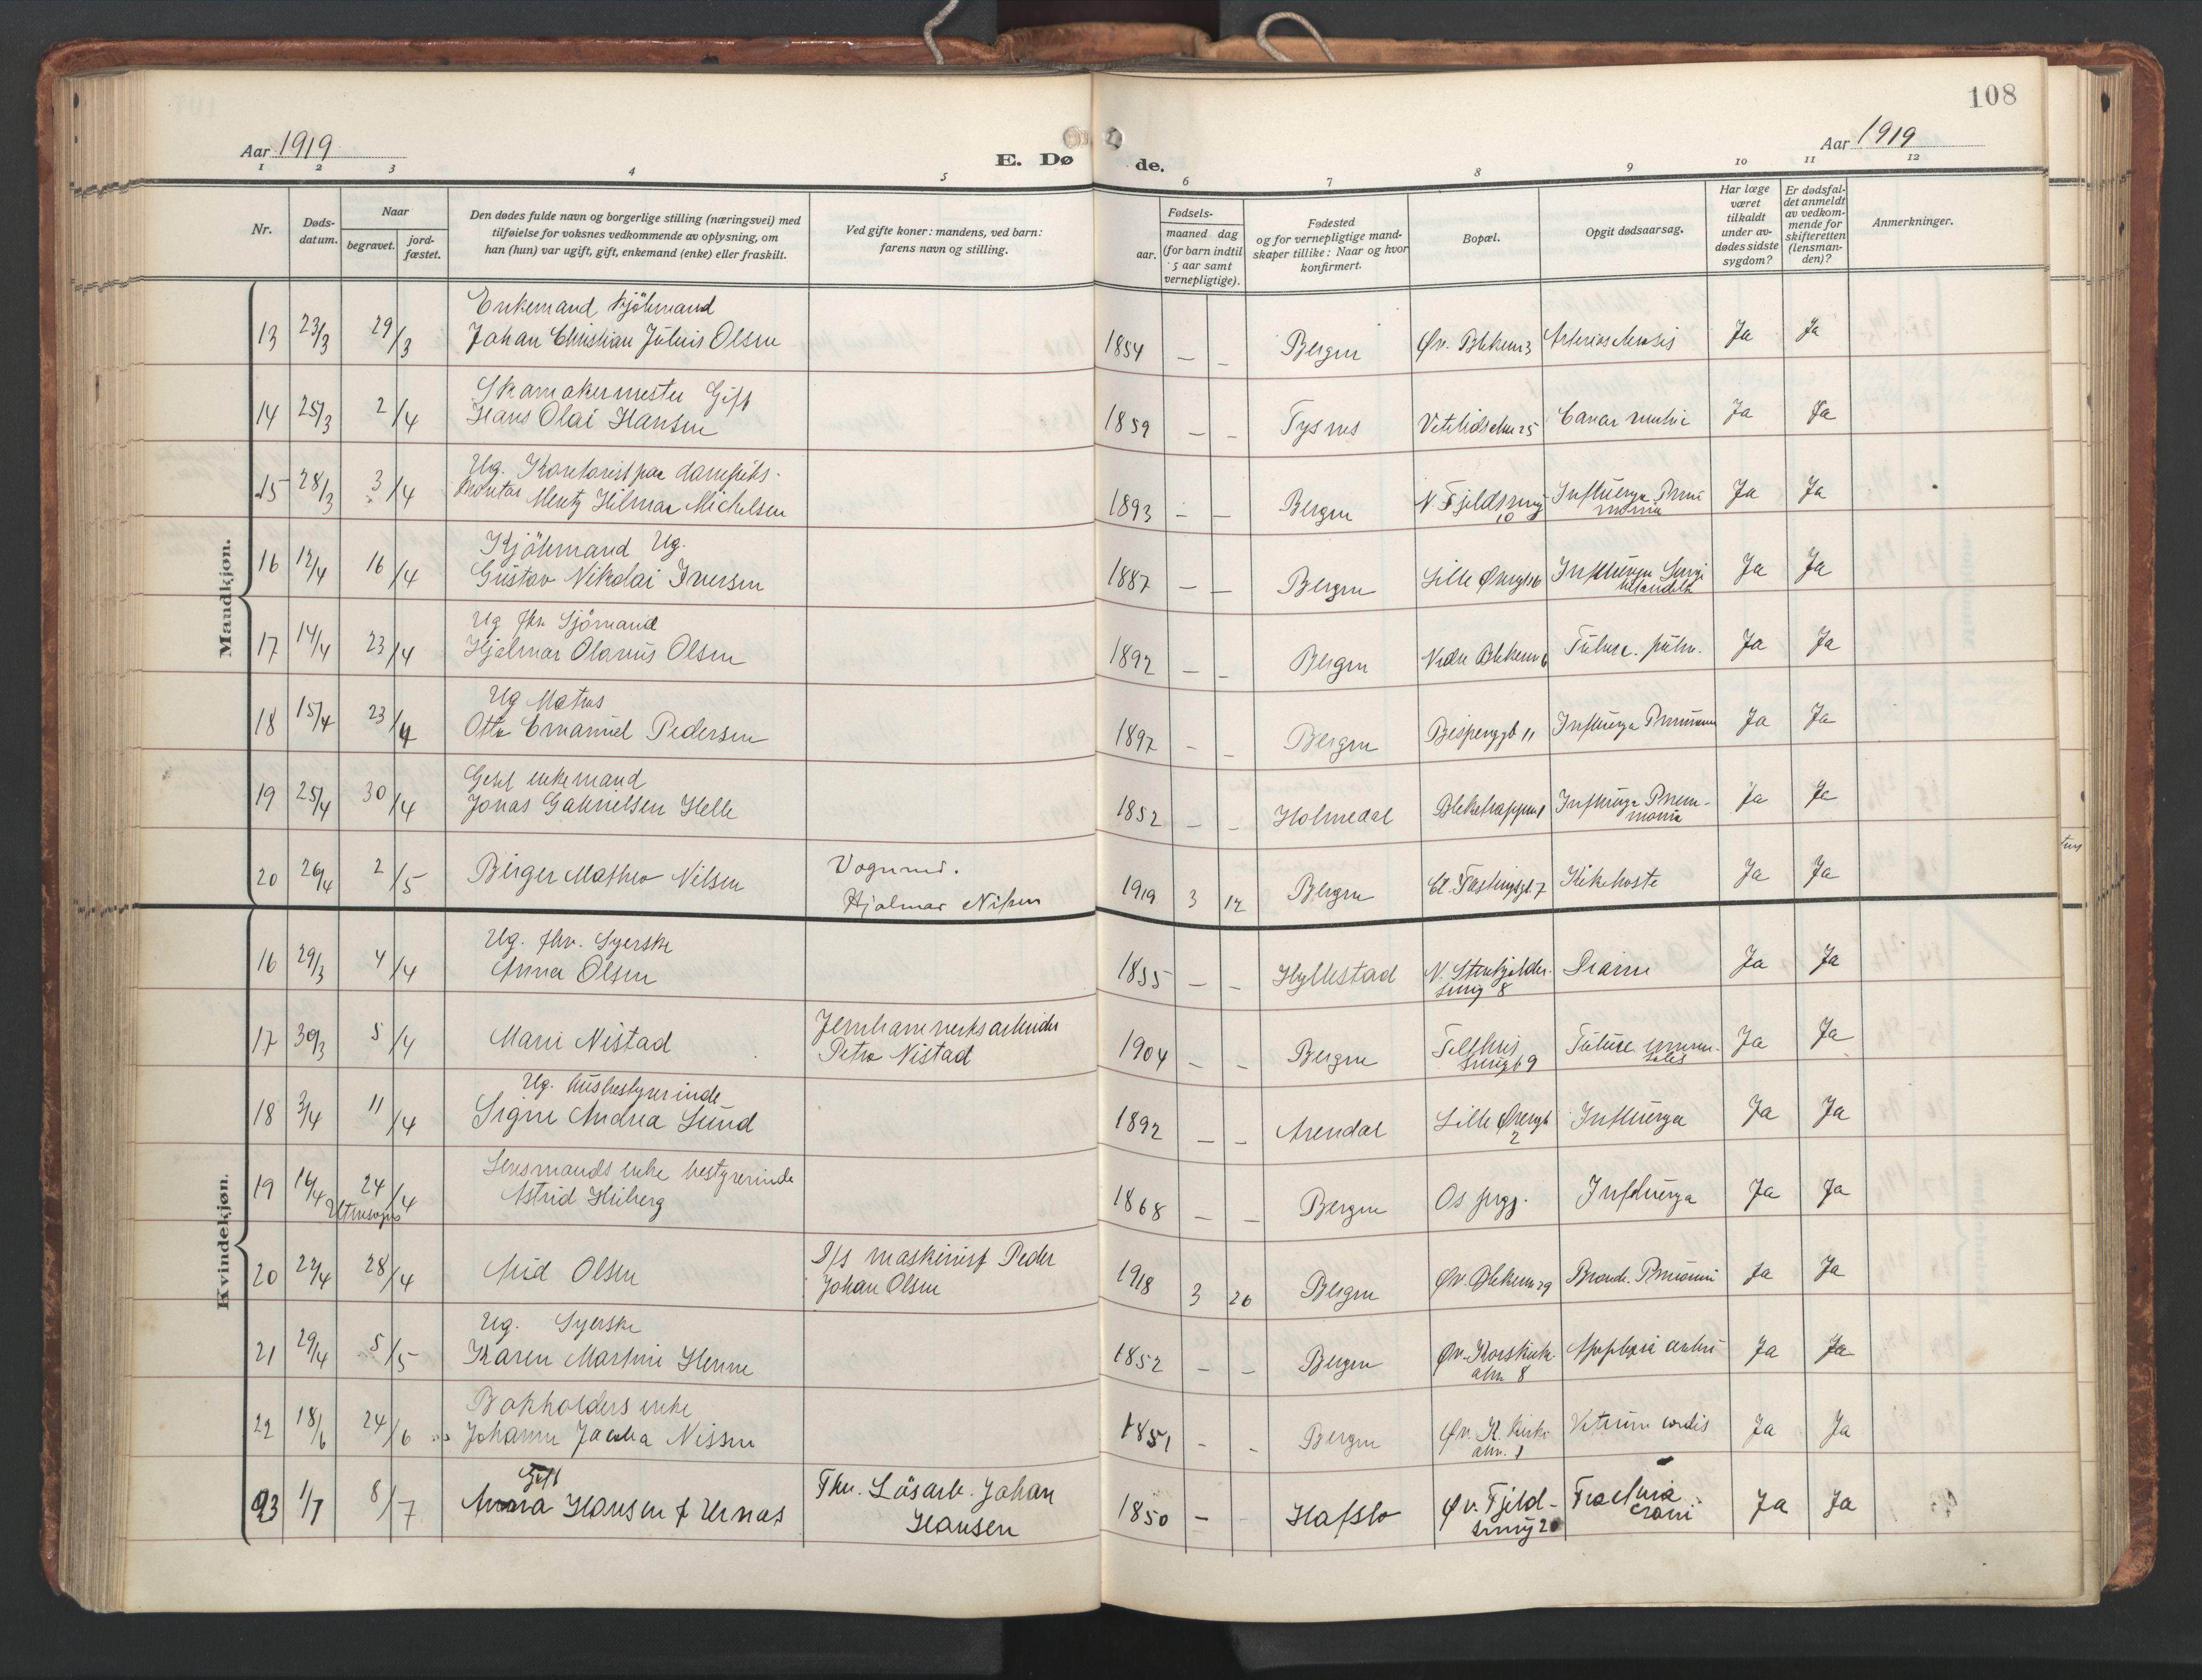 108
Aar 1919
E. Dø
de.
Aar 1919
1 2 3 4 5 6 7 8 9 10 11 12
Nr.
Døds-
datum.
Naar
begravet.
jord-
fæstet.
Den dødes fulde navn og borgerlige stilling (næringsvei) med
tilføielse for voksnes vedkommende av oplysning, om
han (hun) var ugift, gift, enkemand (enke) eller fraskilt.
Ved gifte koner: mandens, ved barn:
farens navn og stilling.
Fødsels-
aar.
maaned dag
(for barn indtil
5 aar samt
vernepligtige).
Fødested
og for vernepligtige mand-
skaper tillike: Naar og hvor
konfirmert.
Bopæl.
Opgit dødsaarsag.
Har læge
været
tilkaldt
under av-
dødes sidste
sygdom?
Er dødsfal-
det anmeldt
av vedkom-
mende for
skifteretten
(lensman-
den)?
Anmerkninger.
Mandkjøn.
Enkemand Kjöbmand
13 23/3 29/3 Johan Christian Julius Olsen 1854 – – Bergen Øv. Blekevn 3 Arteriosclerosis Ja Ja
Skomakermester Gift
14 25/3 2/4 Hans Olai Hansen 1859 – – Tysnes Vetrlidsalm 25 Ja Ja
Ug. Kontorist paa dampskibs-
15 28/3 3/4 kontor Mentz Hilmar Michelsen 1893 – – Bergen N. Fjeldsmug Influenza Pneu
10 monia Ja Ja
Kjöbmand Ug.
16 12/4 16/4 Gustav Nikolai Iversen 1887 – – Bergen Lille Øvregt 6 Influenza Ja Ja
Ug fhv. Sjömand
17 14/4 23/4 Hjalmar Olavus Olsen 1892 – – Bergen Nedre Blekevn 6 Tuberc. pulm. Ja Ja
Ug Matros
18 15/4 23/4 Otto Emanuel Pedersen 1897 – – Bergen Bispenggt 11 Influenza Pneumoni Ja Ja
enkemand
19 25/4 30/4 Jonas Gabrielsen Helle 1852 – – Holmedal Bleketrappen 1 Influenza Pneu-
monia Ja Ja
20 26/4 2/5 Birger Matheo Nilsen Vognmd.
Hjalmar Nilsen 1919 3 12 Bergen Cl. Fastingsgt. 7 Kikhoste Ja Ja
Kvindekjøn.
Ug. fhv. Syerske
16 29/3 4/4 Anna Olsen 1855 – – Hyllestad N. Stenkjelder-
smug 8 Ja Ja
17 30/3 5/4 Marie Nistad Jernbaneverksarbeider
Peter Nistad 1904 – – Bergen Telthus
smuget 9 Tuberc. Ja Ja
Ug. husbestyrerinde
18 3/4 11/4 Signe Andrea Lund 1892 – – Arendal Lille Øvregt
2 Influenza Ja Ja
Lensmands enke bestyrerinde
19 16/4 24/4 Astrid Hiiberg 1868 – – Bergen Os prgj. Influenza Ja Ja
Utensogns
20 22/4 28/4 Arid Olsen D/S maskinist Peder
Johan Olsen 1918 3 26 Bergen Øv. Blekevn 29 Bronch. Pneumoni Ja Ja
Ug. Syerske
21 29/4 5/5 Karen Martine Henne 1852 – – Bergen Øv. Korskirk
alm 8 Apoplexia cerebri Ja Ja
Bokholders enke
22 18/6 24/6 Johanne Jacoba Nissen 1851 – – Bergen Øv. K. Kirke
alm. 1 Vitium cordis Ja Ja
Gift
23 1/7 8/7 Anna Hansen f Urnas Fhv. Lösarb. Johan
Hansen 1850 – – Hafslo Øv. Fjeld-
smug 20 Fractura
crani Ja Ja